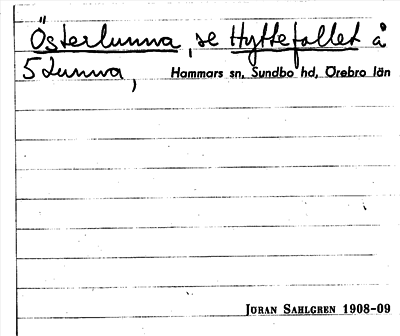 Österlunna, se Hyttefallet å
Sdunna, Hammars sn, Sundbo hd, Örebro län
JÖRAN SAHLGREN 1908-09